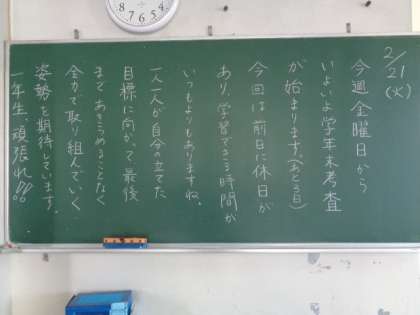 2/21(火)
今週金曜日から
いよいよ学年末考査
が始まります。(あと3日)
今回は前日に休日が
あり、学習できる時間が
いつもよりもありますね。
一人一人が自分の立てた
目標に向かって最後
まであきらめることなく
全力で取り組んでいく
姿勢を期待しています。
一年生、頑張れ!!
8 7 6 5 4